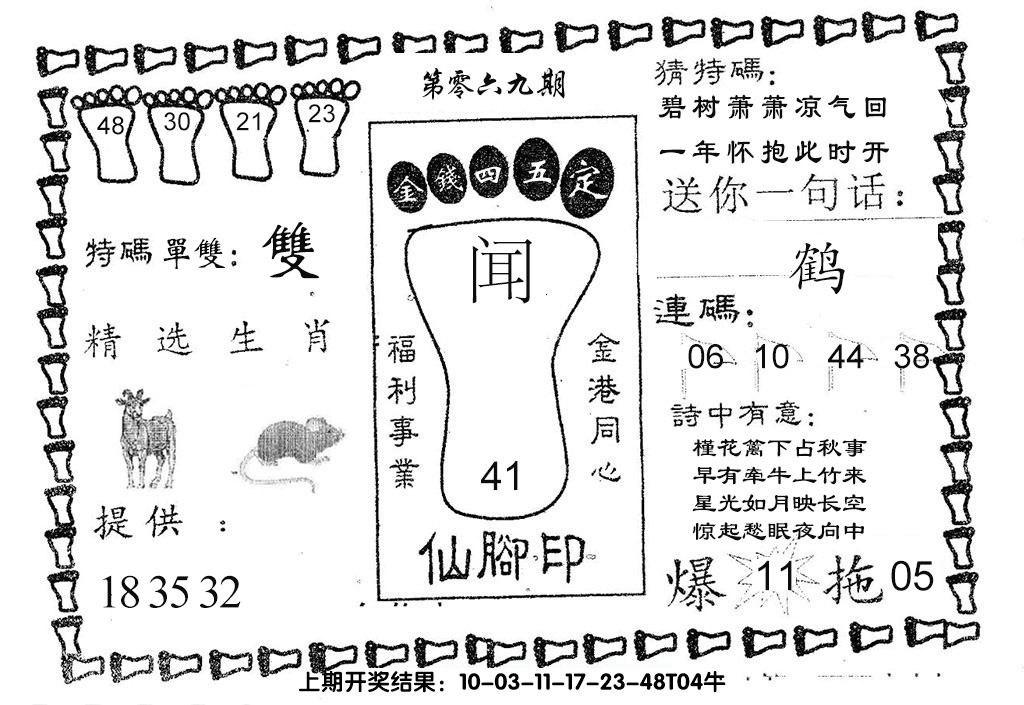 第零六九期
48 30 21 23
特碼單雙：雙
精选生肖
提供：
18 35 32
金錢四五定
闻
福利事業
金港同心
41
仙腳印
猜特碼：
碧树萧萧凉气回
一年怀抱此时开
送你一句话：
鹤
連碼：
06 10 44 38
詩中有意：
槿花篱下占秋事
早有牵牛上竹来
星光如月映长空
惊起愁眠夜向中
爆 11 拖 05
上期开奖结果：10-03-11-17-23-48T04牛